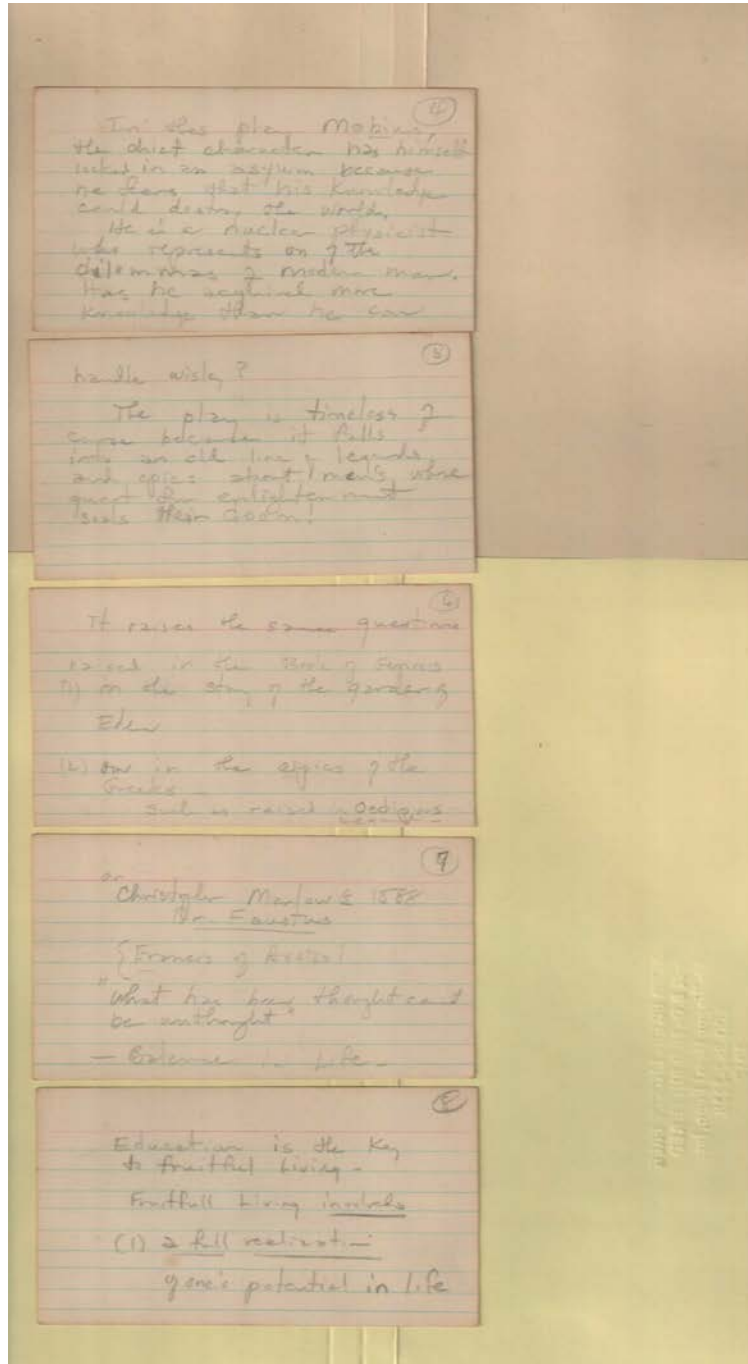 4
In this play Mobius,
the chief character has himself
locked in an asylum because
he fears that his knowledge
could destroy the world.
He is a nuclear physicist
who represents on of the
dilemmas of modern man.
Has he acquired more
knowledge than he can
5
handle wisely?
The play is timeless of
course because it falls
into an old line of legends
and epics about men's whose
quest for enlightenment
seals their doom!
6
It raises the same questions
raised in the Book of Genesis
(1) in the story of the garden of
Eden
(2) or in the epics of the
Greeks
such as raised in Oedipus
7
or
Christopher Marlowe 1588
Dr. Faustus
{Francis of Assisi}
"What has been thought cant
be unthought"
— Balance in Life —
8
Education is the Key
to fruitful living -
Fruitfull Living involves
(1) a full realization
of one's potential in life